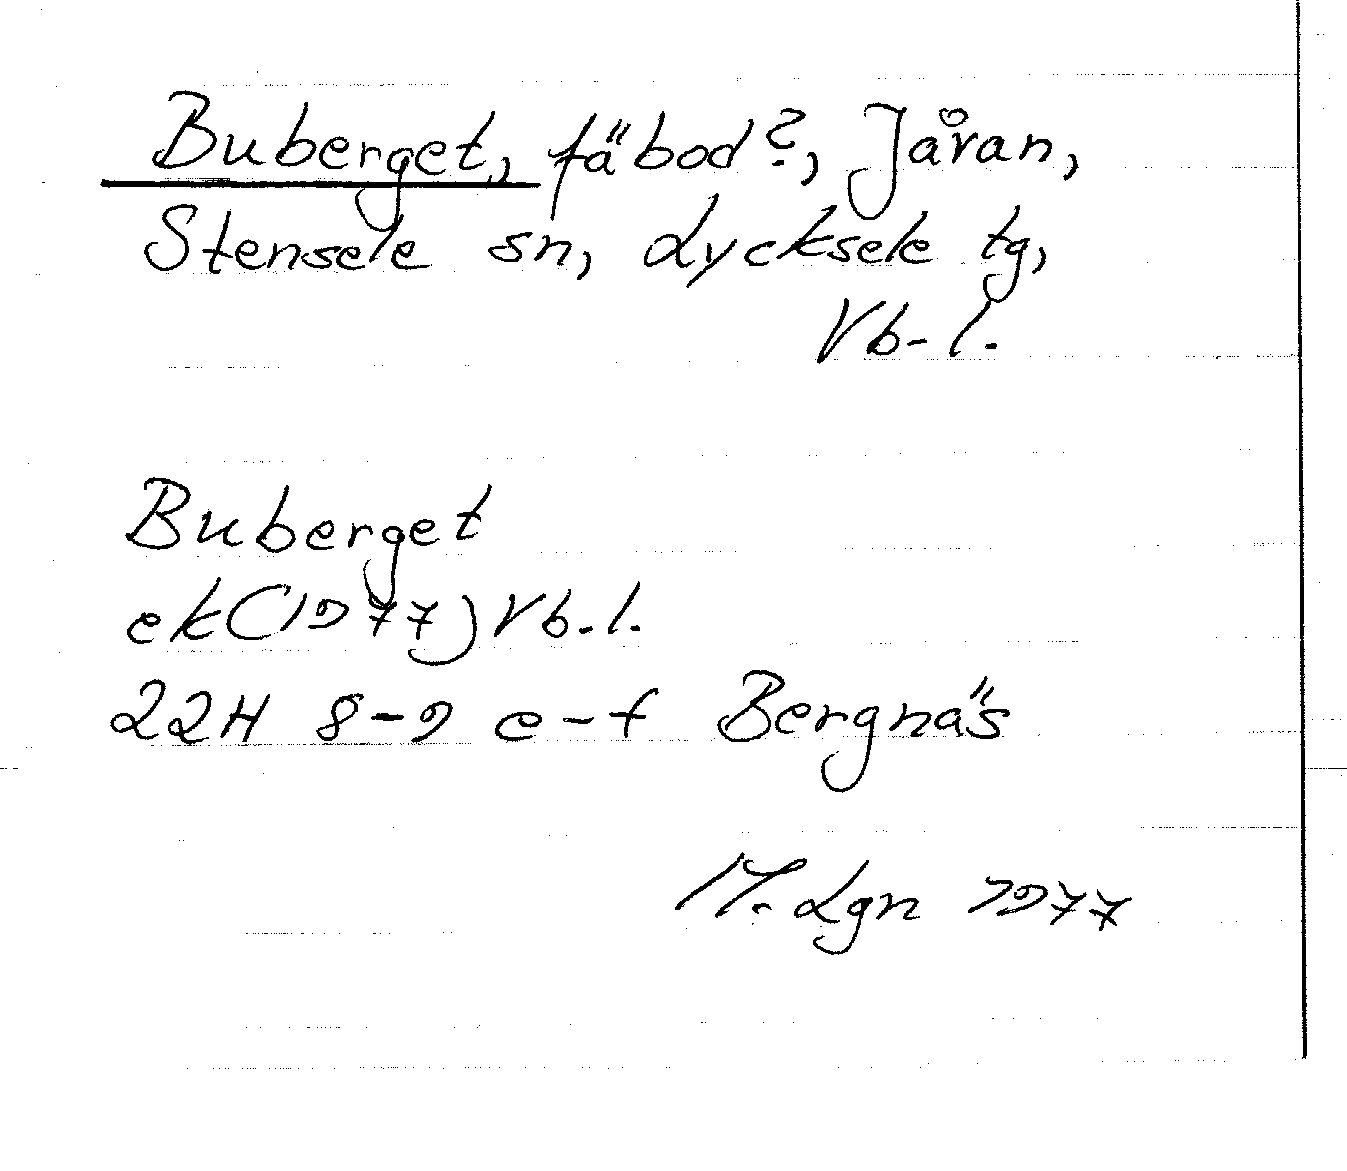 Buberget, fäbod?, Jåran,
Stensele sn, Lycksele tg,
Vb-l.
Buberget
ek(1977)Vb.l.
22H 8-9 e-f Bergnäs
M. Lgn 1977